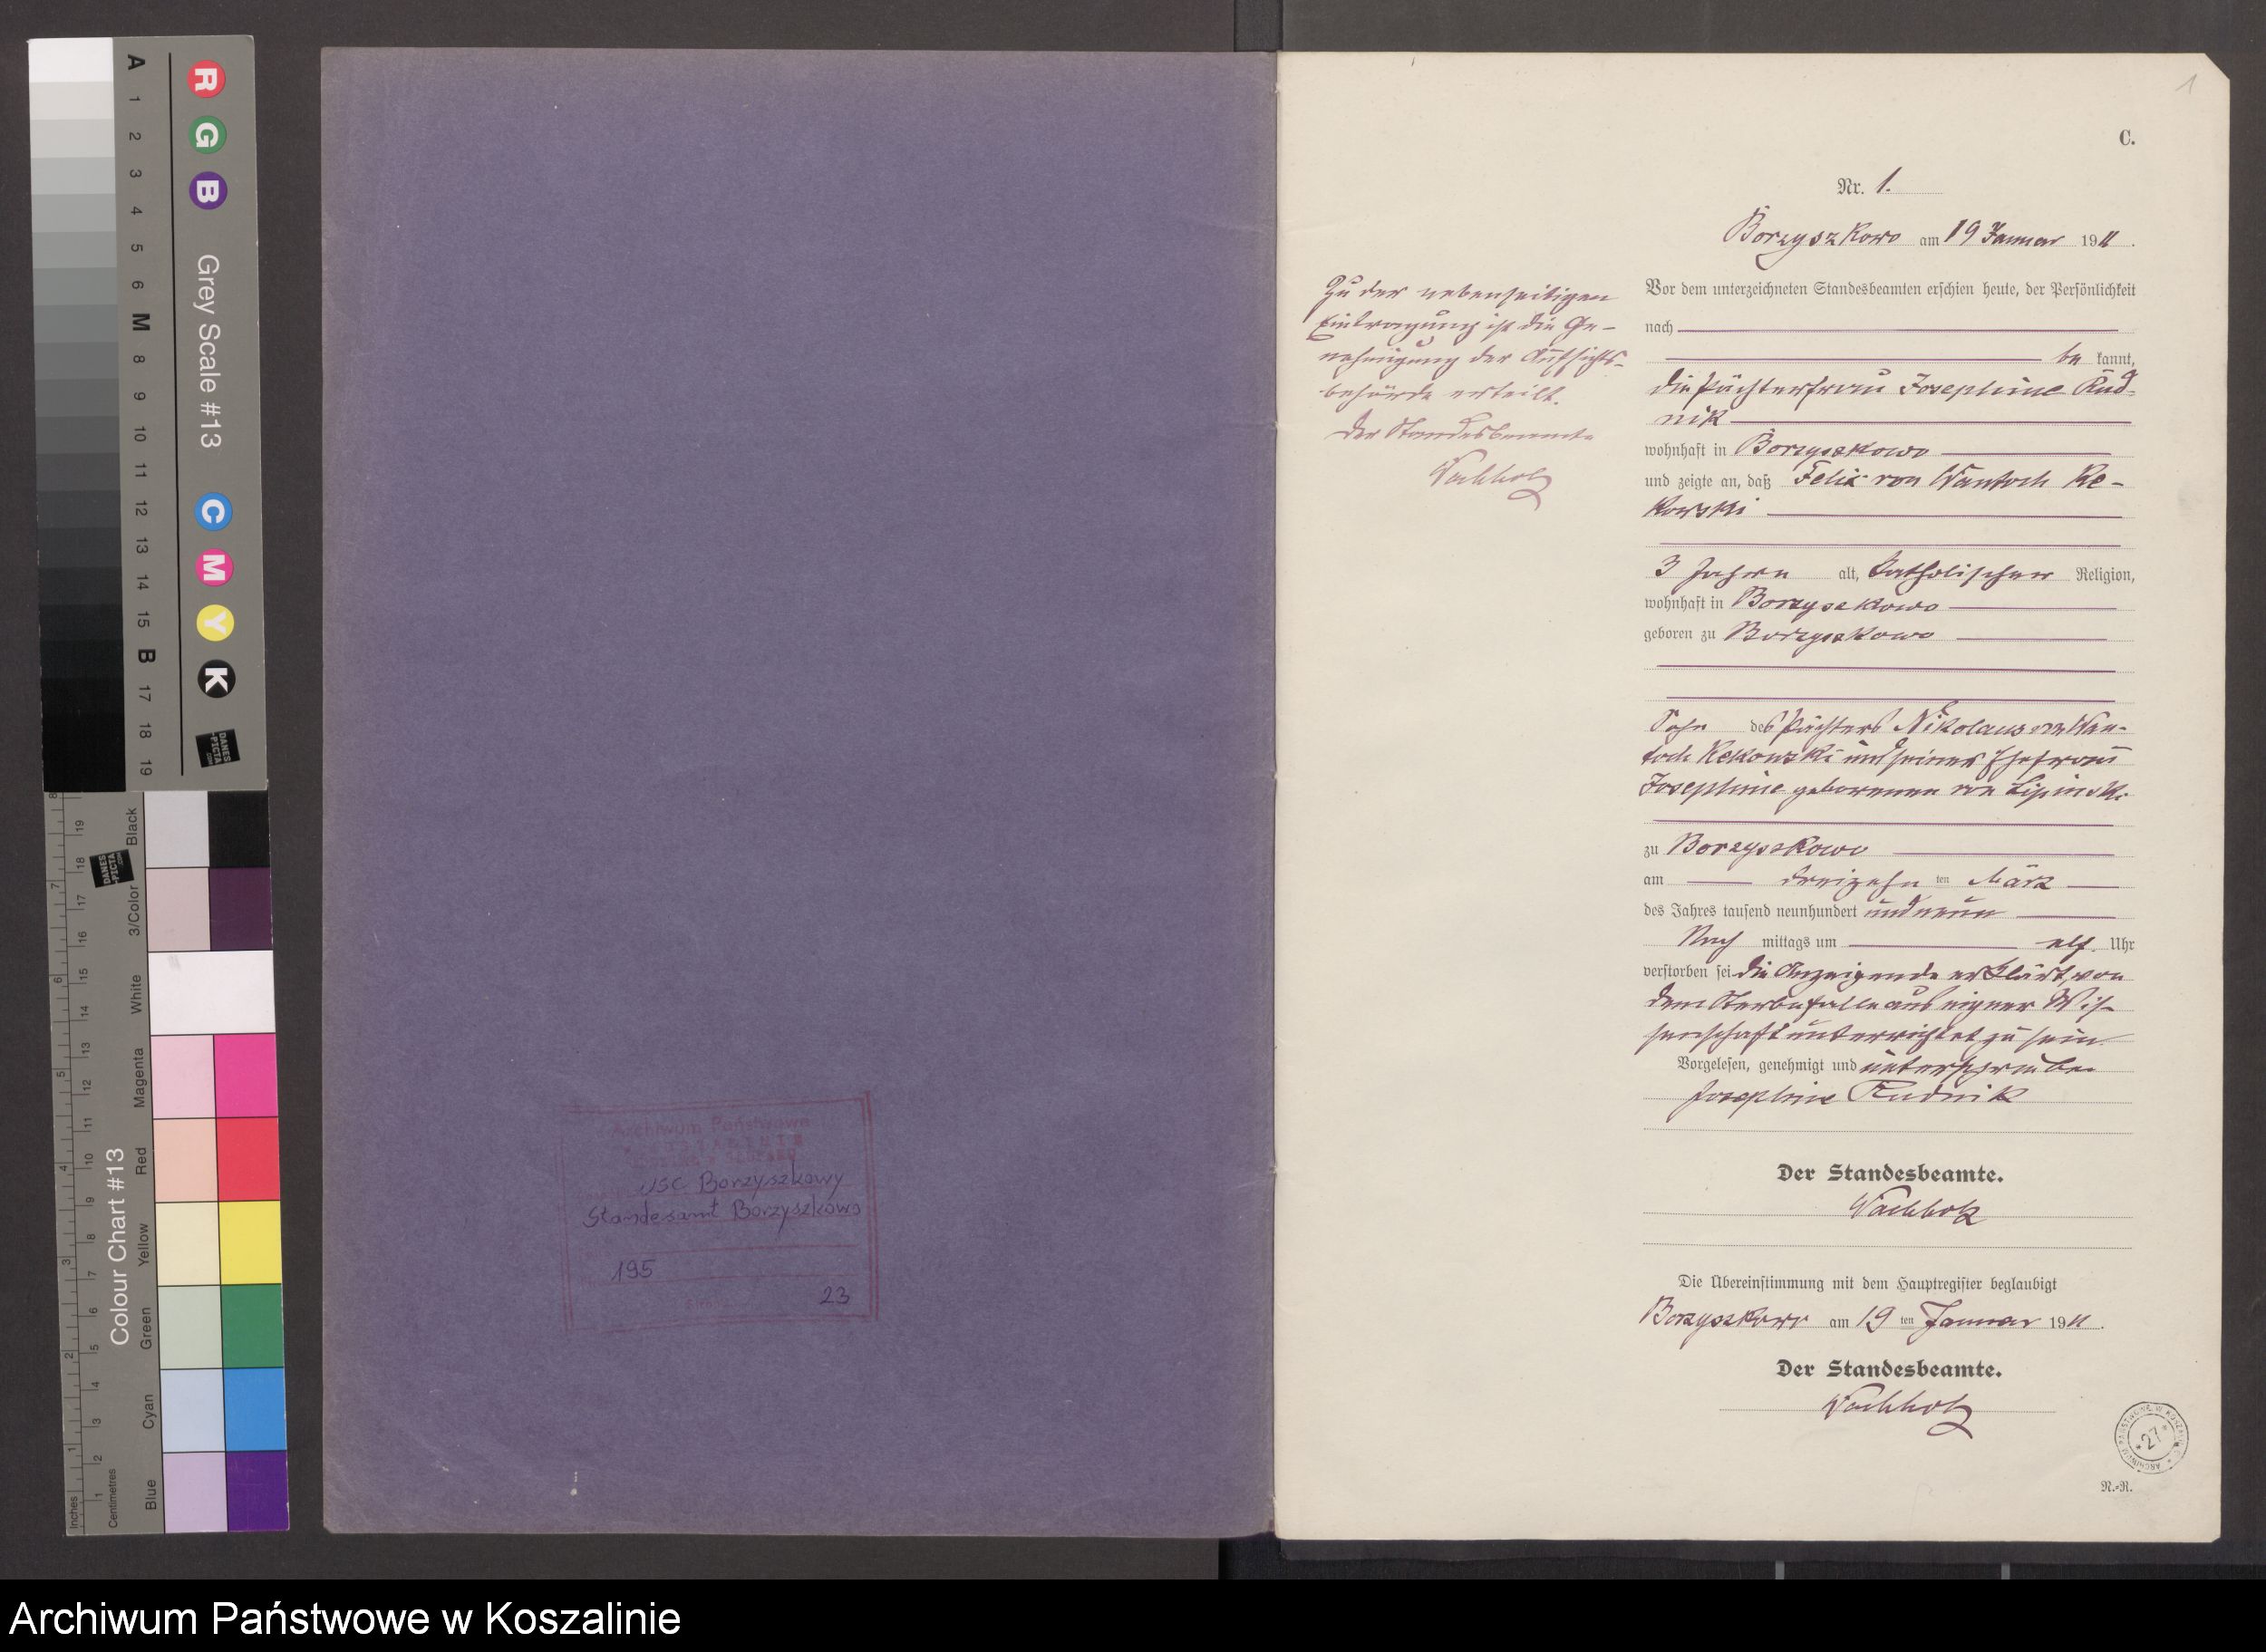 A 1 2 3 4 5 6 M 8 9 10 11 12 13 14 15 B 17 18 19
R G B Grey Scale #13 C M Y K
DANES
-PICTA
.COM
Colour Chart #13
Black
3/Color
White
Magenta
Red
Yellow
Green
Cyan
Blue
Inches
Centimetres
Archiwum Państwowe
USC Borzyszkowy
Standesamt Borzyszkowo
195
23
1
C.
Nr. 1.
Borzyszkowo am 19 Januar 1911.
Zu der nebenseitigen
Eintragung ist die Ge-
nehmigung der Aufsichts-
behörde erteilt.
Der Standesbeamte
Wachholz
Vor dem unterzeichneten Standesbeamten erschien heute, der Persönlichkeit
nach
be kannt,
die Pächterfrau Josephine Rud-
nik
wohnhaft in Borzyszkowo
und zeigte an, daß Felix von Wantoch Re-
kowski
3 Jahre alt, katholischer Religion,
wohnhaft in Borzyszkowo
geboren zu Borzyszkowo
Sohn des Pächters Nikolaus von Wan-
toch Rekowski und seiner Ehefrau
Josephine geborenen von Lipinski
zu Borzyszkowo
am dreizehn ten März
des Jahres tausend neunhundert und neun
Nach mittags um elf Uhr
verstorben sei die Anzeigende erklärt, von
dem Sterbefalle aus eigner Wis-
senschaft unterrichtet zu sein.
Vorgelesen, genehmigt und unterschrieben
Josephine Rudnik
Der Standesbeamte.
Wachholz
Die Übereinstimmung mit dem Hauptregister beglaubigt
Borzyszkowo am 19 ten Januar 1911.
Der Standesbeamte.
Wachholz
ARCHIWUM PAŃSTWOWE W KOSZALINIE
* 27 *
N.-R.
Archiwum Państwowe w Koszalinie